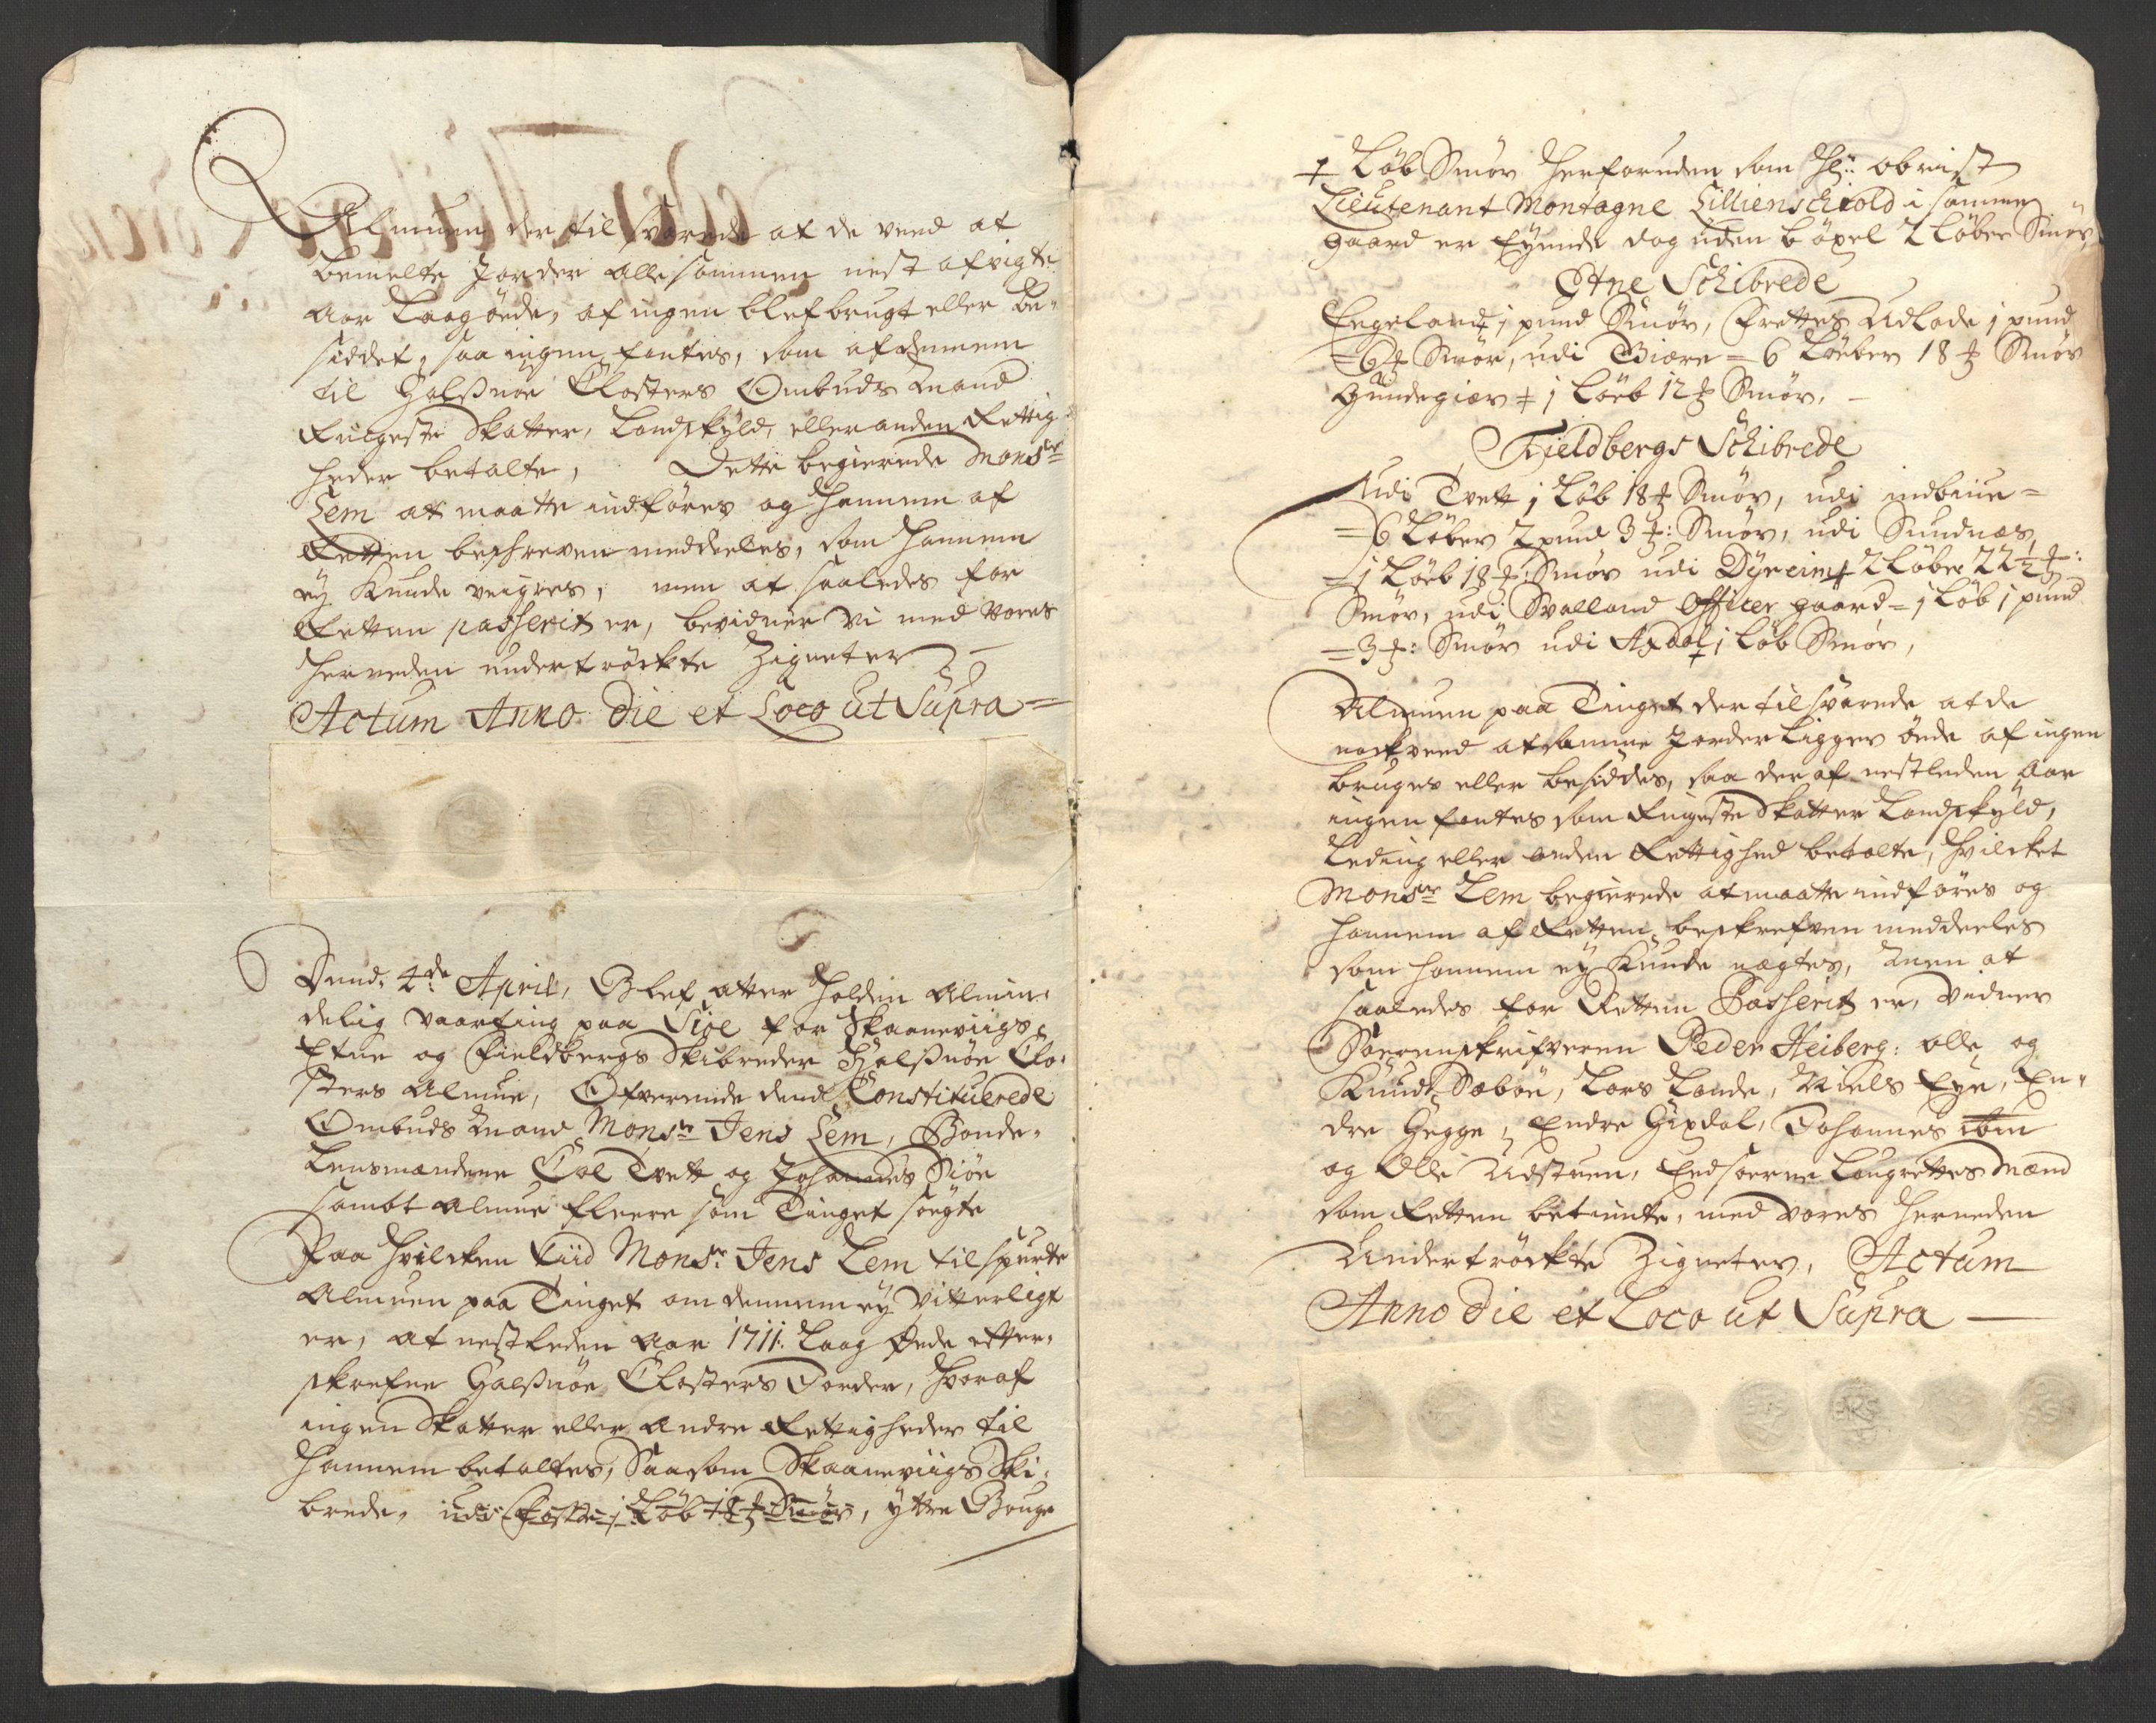 Almuen der til svarede at de veed at
bemelte Jorder allesammen nest afvigte
Aar Laag øede, af ingen blef brugt eller be-
siddet, saa ingen fantes, som af dennem
til Halsnøe Closters Ombuds Mand
Ringeste Skatter, Landskyld, eller anden Rettig-
heder betalte, Dette begierede Monsr
Lem at maatte indføres og hannem af
Retten beschreven meddeeles, som hannem
ey Kunde veigres, men at saaledes for
Retten passerit er, bevidner vi med vores
herneden undertrøckte Zigneter
Actum Anno die et Loco ut Supra
Dend. 4de April, Blef atter holden Almin-
delig Vaarting paa Siøe for Skaaneviigs
Etne og Fieldbergs Skibreder Halsnøe Clo-
sters Almue, Ofverværende dend Constituerede
Ombuds Mand Monsr Jens Lem, Bonde-
Lensmændene Col Tvett og Johannes Siøe
sambt Almue fleere som Tinget søgte
Paa hvilcken tiid Monsr Jens Lem tilspurte
Almuen paa Tinget om dennem ey vitterligt
er, at nestleden Aar 1711. Laag Øede efter-
skrefne Halsnøe Closters Jorder, hvoraf
ingen Skatter eller andre Rettigheder til
hannem betaltes, Saasom Skaaneviigs Ski-
brede, udi Foste 1 Løb 18 Smør, ytre Bouge
1 Løb Smør herforuden som Hr: obrist
Lieutenant Montagne Lillienschiold i samme
gaard er Eyende dog uden bøxel 2 Løber Smør
Etne Schibrede
Engeland 1 pund Smør, Frettes Udlade 1 pund
6 Smør, udi Biære 6 Løeber 18 Smør
Hundegier 1 Løeb 12 Smør.
Fieldbergs Schibrede
Udi Tvett 1 Løb 18 Smør, udi indbiue
6 Løber 2 pund 3 Smør, udi Sundnæs
1 Løeb 18 Smør udi Dyreim 2 Løber 22½
Smør, udi Svalland Officer gaard 1 Løb 1 pund
3 Smør udi Axdal 1 Løb Smør,
Almuen paa Tinget der til svarede at de
nock veed at samme Jorder Ligger øede af ingen
bruges eller besiddes, saa der af nestleden Aar
ingen fantes som Ringeste Skatter Landskyld,
Leding eller anden Rettighed betalte, hvilcket
Monsr Lem begierede at maatte indføres og
hannem af Retten beskrefven meddeeles
som hannem ey Kunde nægtes, Men at
saaledes for Retten Passerit er, vidner
Soerenskrifveren Peder Heiberg: olle og
Knud Sæbøe, Lars Lande, Niels Eye, En-
dre Hegge, Endre Gixdal, Johannes ibm
og Olle Udstuen, Eedsoerne Laugrettes Mænd
som Retten betiente, med vores herneden
Undertrøckte Zigneter, Actum
Anno die et Loco ut Supra